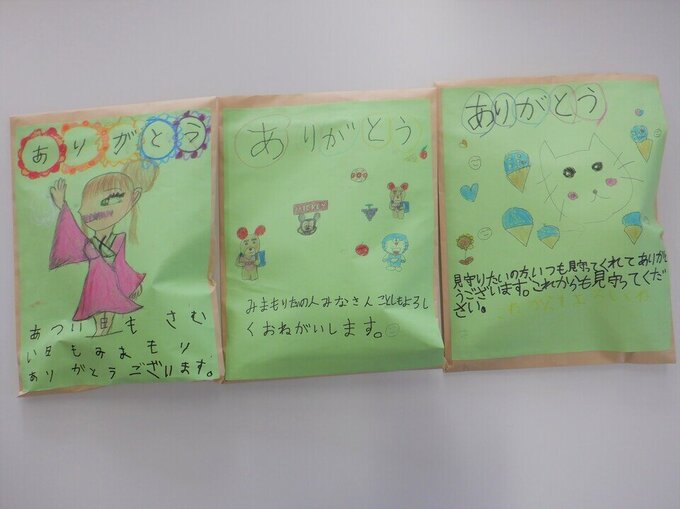 ありがとう
あつい日も さむ
い日もみまもり
ありがとうございます。
ありがとう
MICKEY
みまもりたいの人みなさん ことしもよろし
くおねがいします。
ありがとう
見守りたいの方、いつも見守ってくれてありがと
うございます。これからも見守ってくだ
さい。